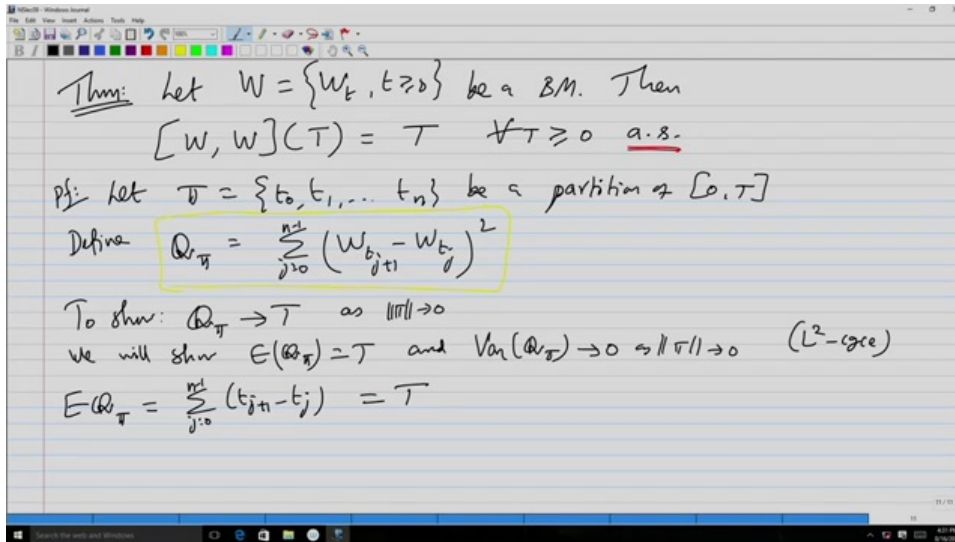 NSlec09 - Windows Journal
File Edit View Insert Actions Tools Help
Thm: Let W = {W_t, t ≥ 0} be a BM. Then
[W, W](T) = T ∀ T ≥ 0 a.s.
Pf: Let π = {t_0, t_1, ... t_n} be a partition of [0, T]
Define Q_π = Σ_{j=0}^{n-1} (W_{t_{j+1}} - W_{t_j})^2
To show: Q_π → T as ||π|| → 0
We will show E(Q_π) = T and Var(Q_π) → 0 as ||π|| → 0 (L^2-cgce)
E Q_π = Σ_{j=0}^{n-1} (t_{j+1} - t_j) = T
Search the web and Windows